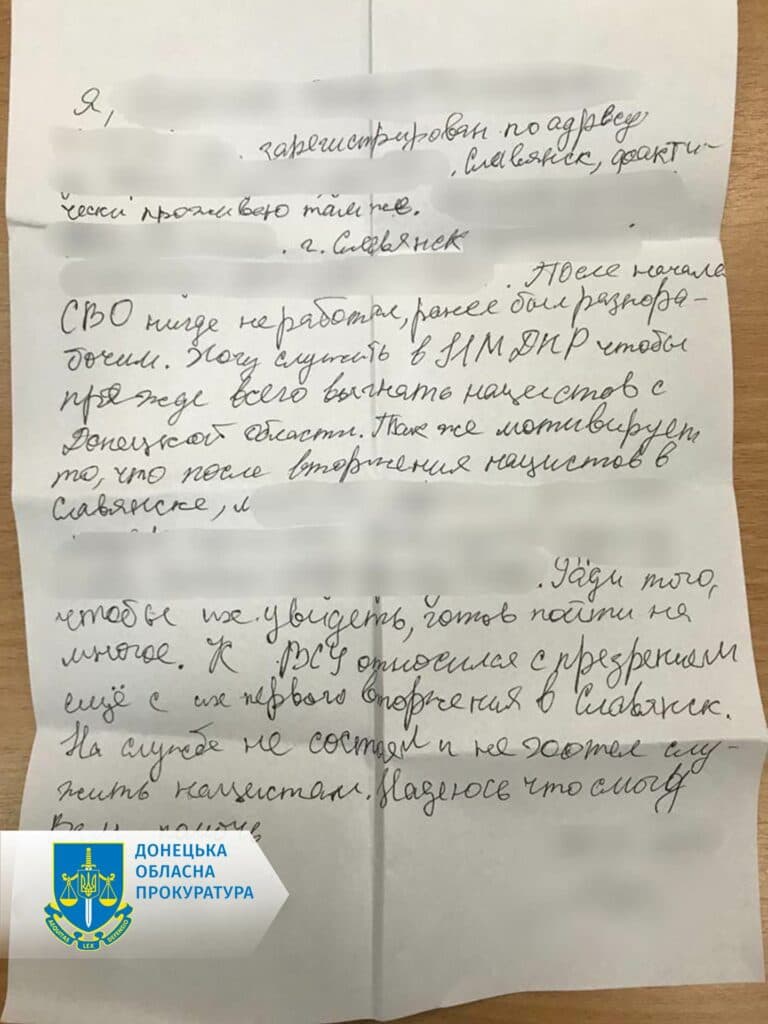 Я,
зарегистрирован по адресу
. Славянск, факти-
чески проживаю там же.
. г. Славянск
. После начала
СВО нигде не работал, ранее был разнора-
бочим. Хочу служить в НМ ДНР чтобы
прежде всего выгнать нацистов с
Донецкой области. Так же мотивирует
то, что после вторжения нацистов в
Славянске,
. Ради того,
чтобы их увидеть, готов пойти на
многое. К ВСУ относился с презрением
ещё с их первого вторжения в Славянск.
На службе не состоял и не хотел слу-
жить нацистам. Надеюсь что смогу
ДОНЕЦЬКА
ОБЛАСНА
ПРОКУРАТУРА
AEQUITAS LEX DEFENSIO